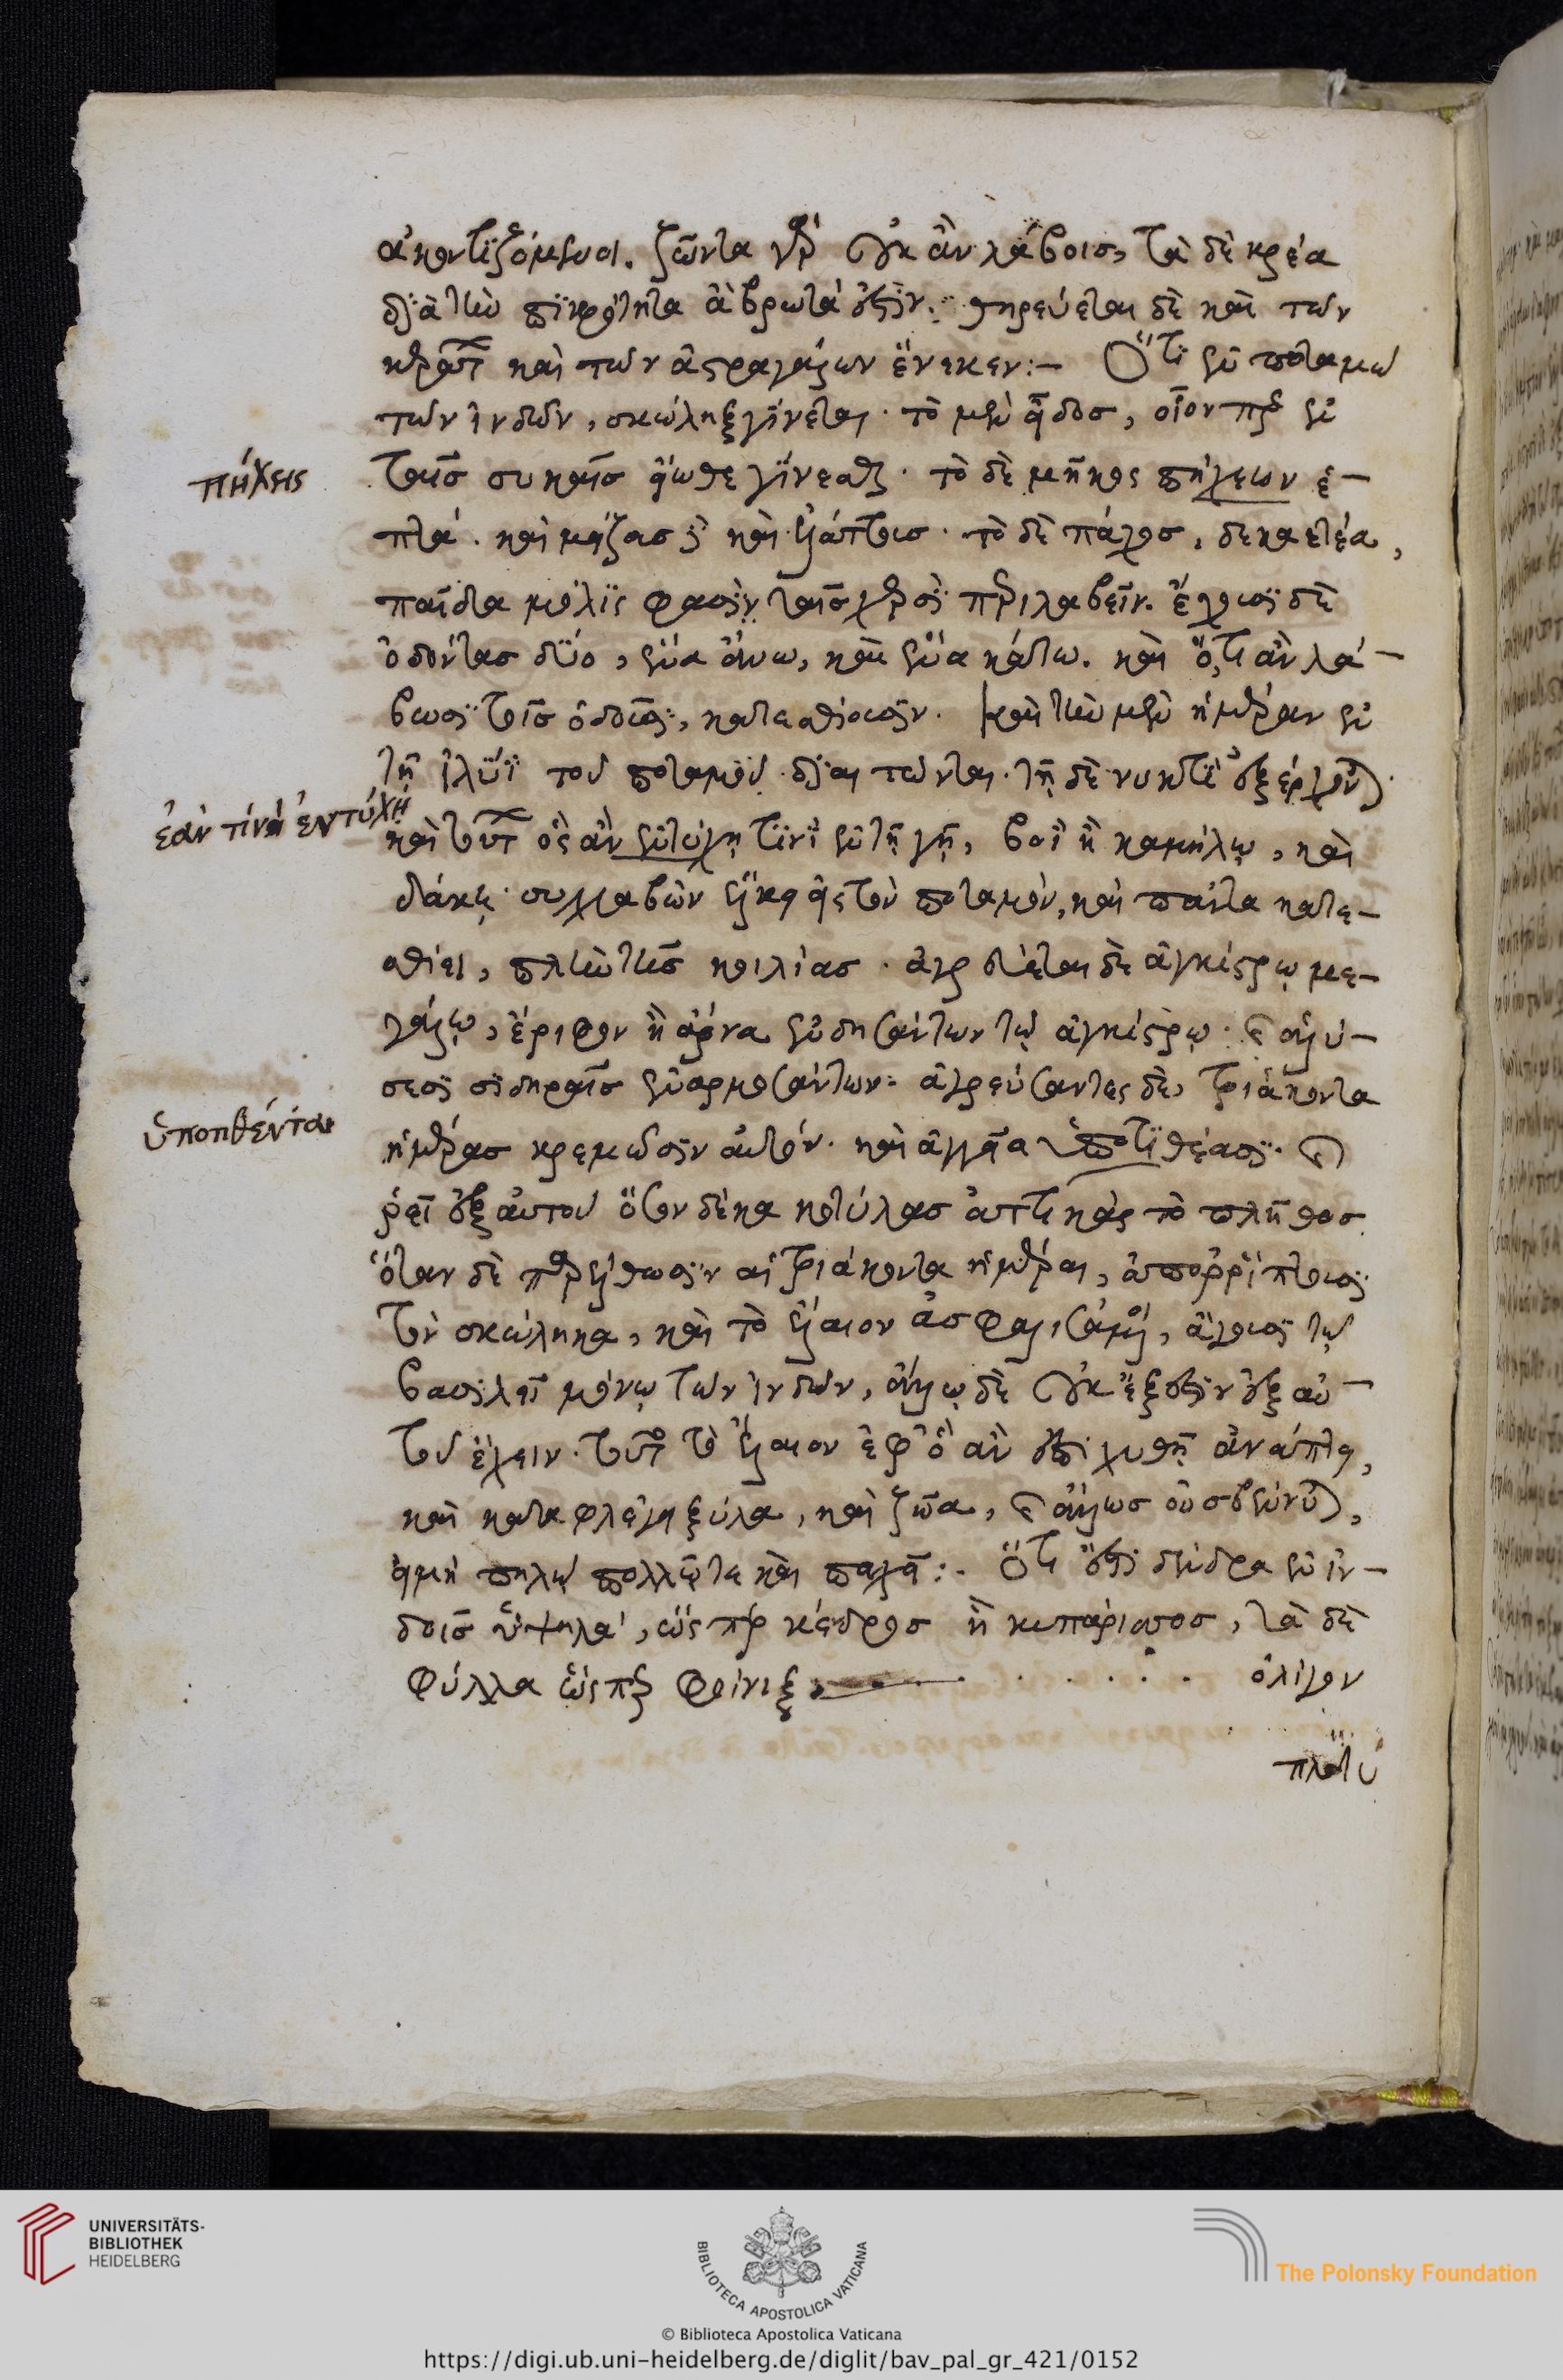 ἀκοντιζόμενοι. ζῶντα γὰρ οὐκ ἂν λάβοις, τὰ δὲ κρέα
διὰ τὴν πικρότητα ἄβρωτά ἐστιν. θηρεύεται δὲ καὶ τῶν
κεράτων καὶ τῶν ἀστραγάλων ἕνεκεν:— Ὅτι ἐν ποταμῷ
τῶν ἰνδῶν, σκώληξ γίνεται. τὸ μὲν εἶδος, οἷον περ ἐν
ταῖς συκαῖς εἴωθε γίνεσθαι. τὸ δὲ μῆκος πήχεων ἑ—
πτά. καὶ μείζας δὲ καὶ ἐλάττους. τὸ δὲ πάχος, δεκαετέα,
παῖδα μόλις φασὶν ταῖς χερσὶ περιλαβεῖν. ἔχουσι δὲ
ὀδόντας δύο, ἕνα ἄνω, καὶ ἕνα κάτω. καὶ ὅ,τι ἂν λά—
βωσι τοῖς ὀδοῦσι, κατεσθίουσιν. καὶ τὴν μὲν ἡμέραν ἐν
τῇ ἰλύϊ τοῦ ποταμοῦ διαιτῶνται. τῇ δὲ νυκτὶ ἐξέρχονται.
καὶ τούτων ὃς ἂν ἐντύχῃ τινὶ ἐν τῇ γῇ, βοῒ ἢ καμήλῳ, καὶ
δάκῃ. συλλαβὼν ἕλκει εἰς τὸν ποταμόν, καὶ πάντα κατε—
σθίει, πλὴν τῆς κοιλίας. ἀγρεύεται δὲ ἀγκίστρῳ με—
γάλῳ, ἔριφον ἢ ἄρνα ἐνδησάντων τῷ ἀγκίστρῳ. καὶ ἁλύ—
σεσι σιδηραῖς ἐναρμοσάντων. ἀγρεύσαντες δὲ, τριάκοντα
ἡμέρας κρεμῶσιν αὐτόν. καὶ ἀγγεῖα ὑποτιθέασι. καὶ
ῥεῖ ἐξ αὐτοῦ ὅσον δέκα κοτύλας ἀττικὰς τὸ πλῆθος.
ὅταν δὲ παρέλθωσιν αἱ τριάκοντα ἡμέραι, ἀπορρίπτουσι
τὸν σκώληκα, καὶ τὸ ἔλαιον ἀσφαλισάμενοι, ἄγουσι τῷ
βασιλεῖ μόνῳ τῶν ἰνδῶν, ἄλλῳ δὲ οὐκ ἔξεστιν ἐξ αὐ—
τοῦ ἔχειν. τοῦτο τὸ ἔλαιον ἐφ' ὃ ἂν ἐπιχυθῇ ἀνάπτει,
καὶ καταφλέγει ξύλα, καὶ ζῶα, καὶ ἄλλως οὐ σβέννυται,
εἰ μὴ πηλῷ πολλῷ τε καὶ παχεῖ:. Ὅτι ἐστὶ δένδρα ἐν ἰν—
δοῖς ὑψηλά, ὥσπερ κέδρος ἢ κυπάρισσος, τὰ δὲ
φύλλα ὥσπερ φοίνιξ, . . . . . . ὀλίγον
πλατύ
πήχεις
ἐάν τινὰ ἐντύχῃ
ὑποπθένται
UNIVERSITÄTS-
BIBLIOTHEK
HEIDELBERG
BIBLIOTECA APOSTOLICA VATICANA
The Polonsky Foundation
© Biblioteca Apostolica Vaticana
https://digi.ub.uni-heidelberg.de/diglit/bav_pal_gr_421/0152